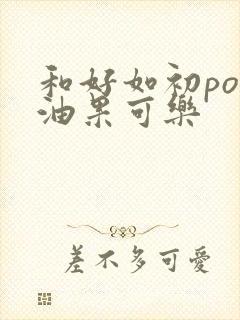 和好如初po
油果可樂
差不多可愛